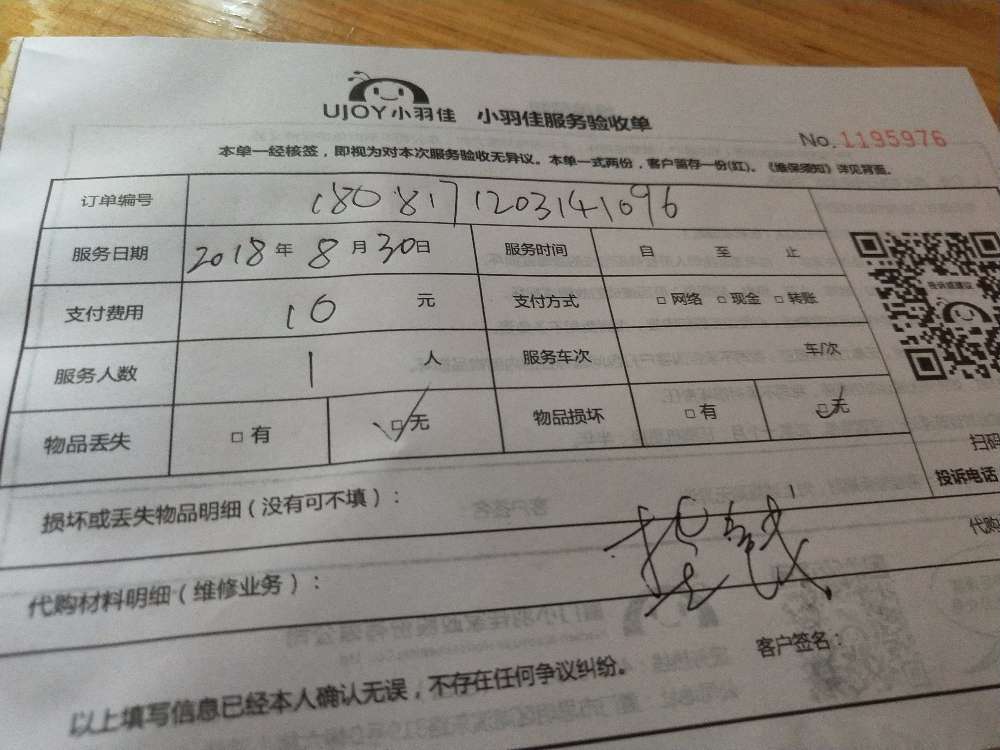 UJOY小羽佳 小羽佳服务验收单
No.1195976
本单一经核签，即视为对本次服务验收无异议。本单一式两份，客户留存一份(红)。《维保须知》详见背面。
订单编号 1808171203141096
服务日期 2018年8月30日 服务时间 自 至 止
支付费用 10 元 支付方式 □网络 □现金 □转账
投诉或建议
服务人数 1 人 服务车次 车/次
物品丢失 □有 □无 物品损坏 □有 □无
扫码
投诉电话
损坏或丢失物品明细（没有可不填）：
代购
代购材料明细（维修业务）：
客户签名：
以上填写信息已经本人确认无误，不存在任何争议纠纷。